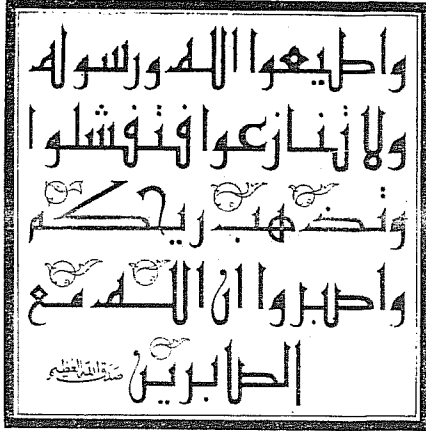 واطيعوا الله ورسوله
ولا تنازعوا فتفشلوا
وتذهب ريحكم
واصبروا ان الله مع
الصابرين صدق الله العظيم